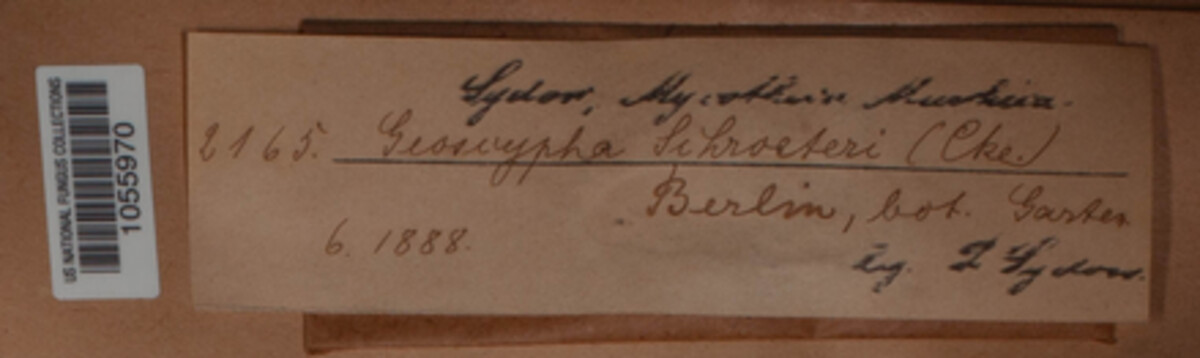 US NATIONAL FUNGUS COLLECTIONS
10559​70
Sydow, Mycotheca Marchica.
2165. Geoscypha Schroeteri (Cke.)
Berlin, bot. Garten
6. 1888.
leg. P Sydow.